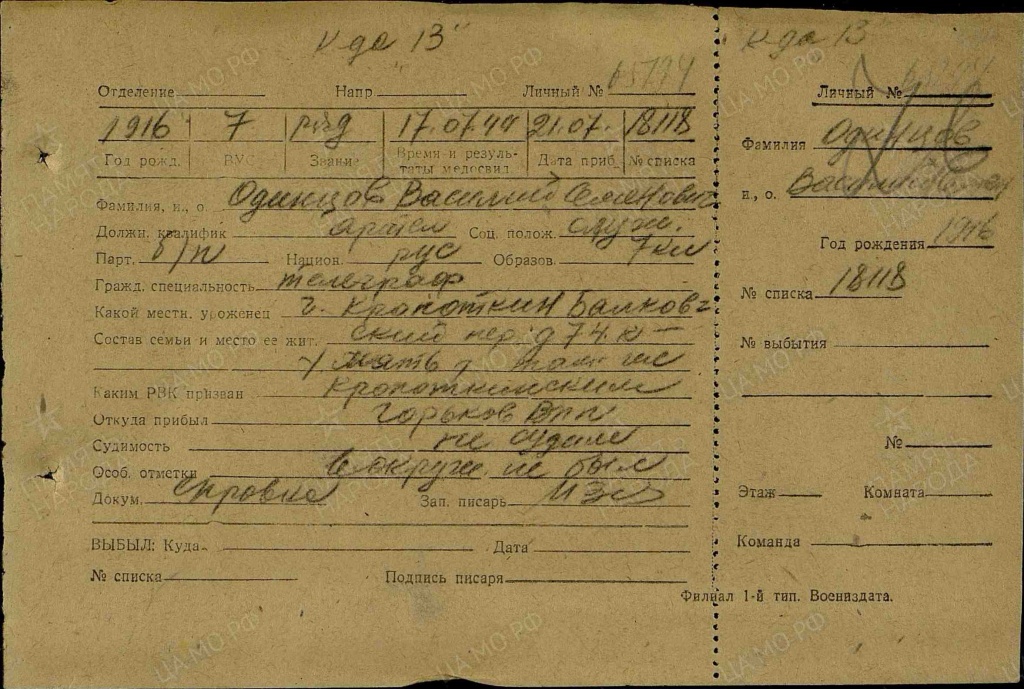 К-да 13"
Отделение Напр Личный №
1916 7 ряд 17.07.44 21.07. 18118
Год рожд. ВУС Звание Время и резуль- Дата приб. № списка
таты медосвид.
Фамилия, и., о. Одинцов Василий Семенович
Должн. квалифик артел Соц. полож. служ.
Парт. б/п Национ. рус Образов. 7 кл
Гражд. специальность телеграф
Какой местн. уроженец г. Кропоткин
Состав семьи и место ее жит. ский пер. д 74. к —
мать там же
Каким РВК призван Кропоткинским
Откуда прибыл Горьков ВПП
Судимость не судим
Особ. отметки В окруж. не был
Докум. Зап. писарь
ВЫБЫЛ: Куда Дата
№ списка Подпись писаря
К-да 13
Личный №
Фамилия Одинцов
и., о. Василий
Год рождения 1916
№ списка 18118
№ выбытия
№
Этаж Комната
Команда
Филиал 1-й тип. Воениздата.
ЦА МО РФ
ПАМЯТЬ НАРОДА